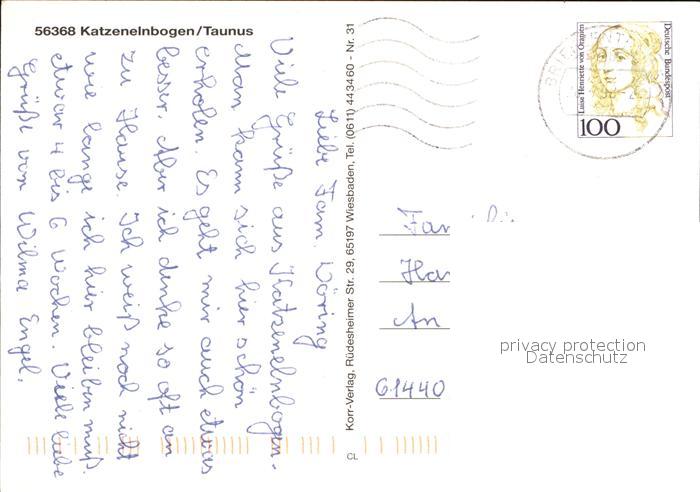 56368 Katzenelnbogen/Taunus
Liebe Fam. Döring
Viele Grüße aus Katzenelnbogen.
Man kann sich hier schön
erholen. Es geht mir auch etwas
besser. Aber ich denke so oft an
zu Hause. Ich weiß noch nicht
wie lange ich hier bleiben muß.
etwar 4 bis 6 Wochen. Viele liebe
Grüße von Wilma Engel.
Korr-Verlag, Rüdesheimer Str. 29, 65197 Wiesbaden, Tel. (0611) 443460 - Nr. 31
CL
Luise Henriette von Oranien
Deutsche Bundespost
100
BRIEFZENTR
Fam
Ha
An
61440
privacy protection
Datenschutz